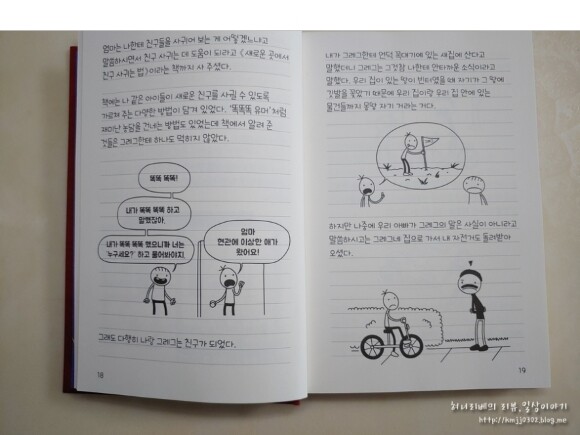 엄마는 나한테 친구들을 사귀어 보는 게 어떻겠느냐고
말씀하시면서 친구 사귀는 데 도움이 되라고 《새로운 곳에서
친구 사귀는 법》이라는 책까지 사 주셨다.
책에는 나 같은 아이들이 새로운 친구를 사귈 수 있도록
가르쳐 주는 다양한 방법이 담겨 있었다. '똑똑똑 유머'처럼
재미난 농담을 건네는 방법도 있었는데 책에서 알려 준
것들은 그레그한테 하나도 먹히지 않았다.
똑똑 똑똑!
내가 똑똑 똑똑 하고
말했잖아.
내가 똑똑 똑똑 했으니까 너는
'누구세요?' 하고 물어봐야지.
엄마
현관에 이상한 애가
왔어요!
그래도 다행히 나랑 그레그는 친구가 되었다.
18
내가 그레그한테 언덕 꼭대기에 있는 새집에 산다고
말했더니 그레그는 그것참 나한테 안타까운 소식이라고
말했다. 우리 집이 있는 땅이 빈터였을 때 자기가 그 땅에
깃발을 꽂았기 때문에 우리 집이랑 우리 집 안에 있는
물건들까지 몽땅 자기 거라는 거다.
하지만 나중에 우리 아빠가 그레그의 말은 사실이 아니라고
말씀하시고는 그레그네 집으로 가서 내 자전거도 돌려받아
오셨다.
19
허니러베의 리뷰,일상이야기
http://kmjj0302.blog.me